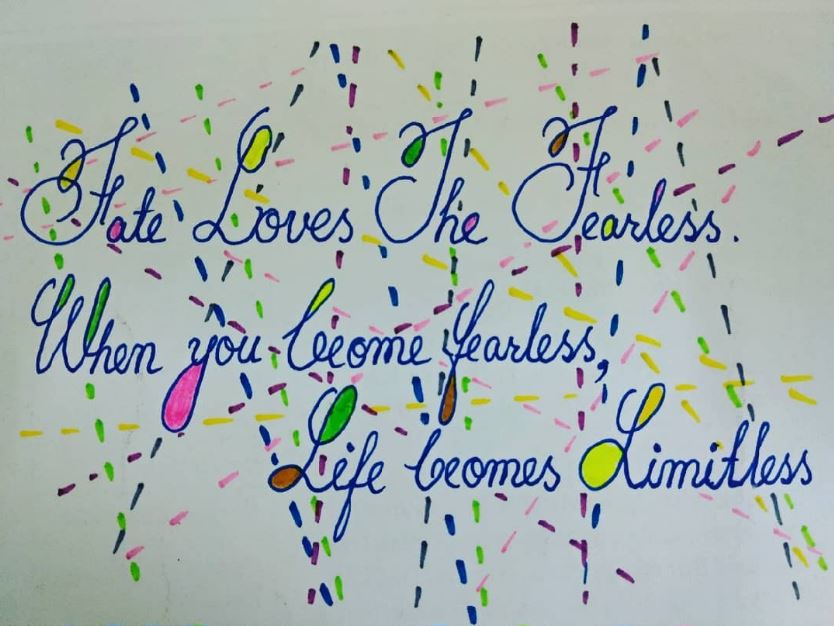 Fate Loves The Fearless.
When you become fearless,
Life becomes Limitless